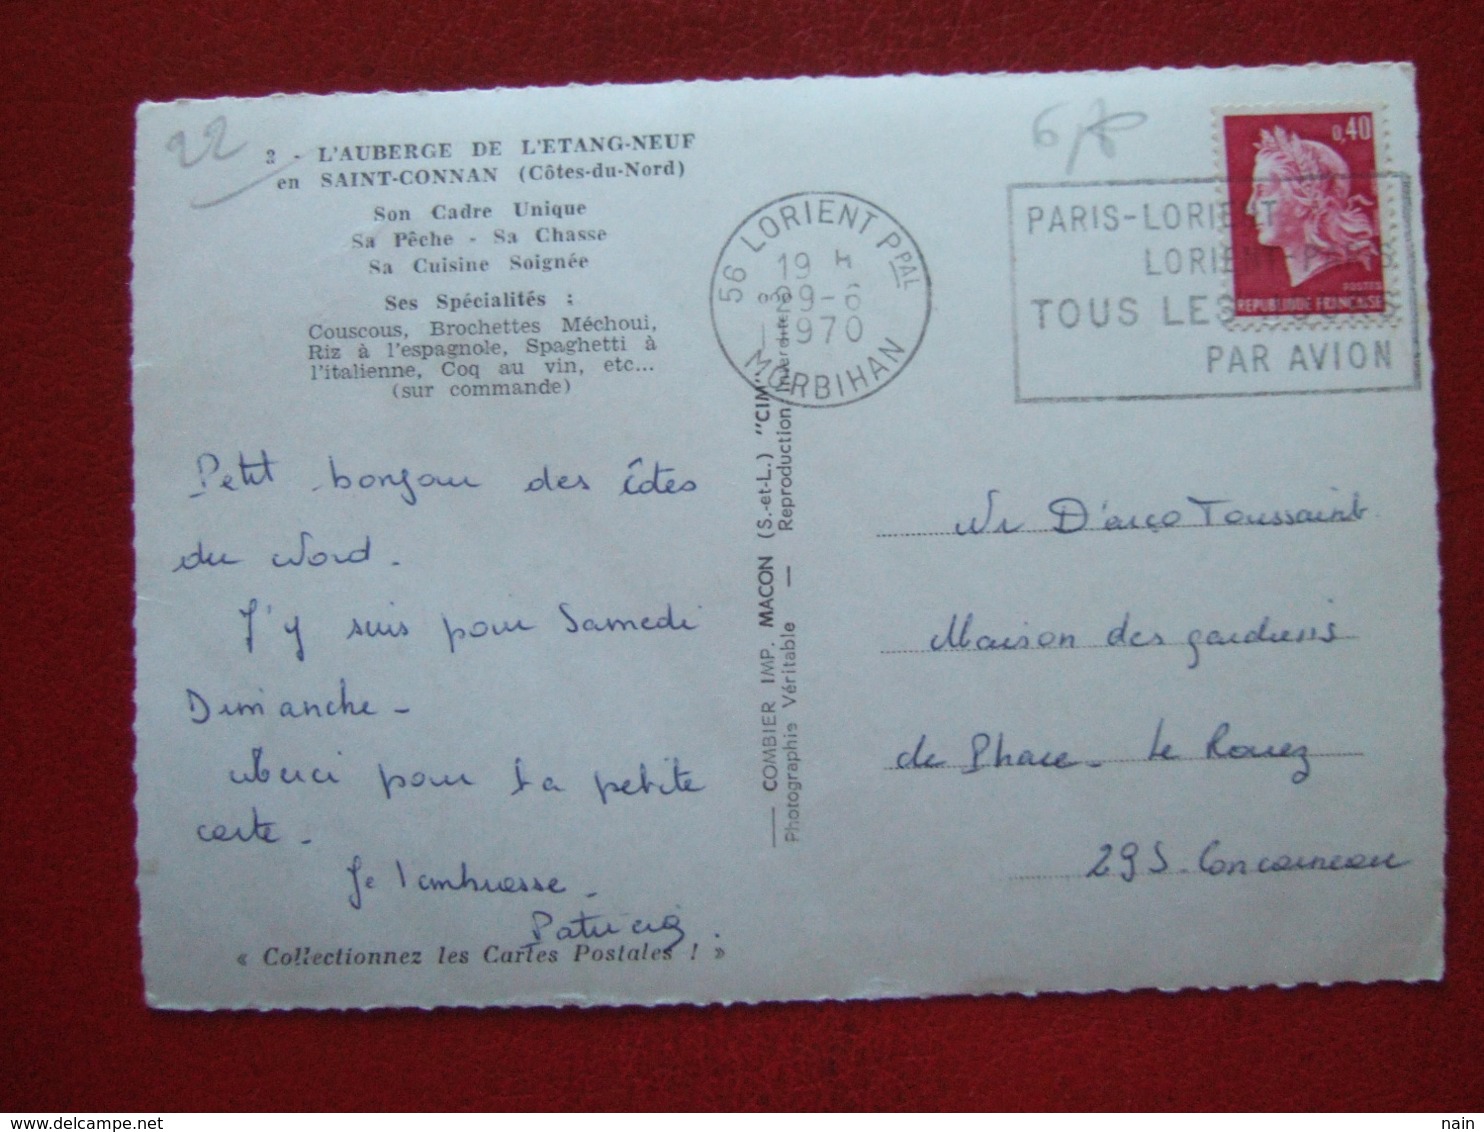 22
2 - L'AUBERGE DE L'ETANG-NEUF
en SAINT-CONNAN (Côtes-du-Nord)
Son Cadre Unique
Sa Pêche - Sa Chasse
Sa Cuisine Soignée
Ses Spécialités :
Couscous, Brochettes Méchoui,
Riz à l'espagnole, Spaghetti à
l'italienne, Coq au vin, etc...
(sur commande)
Petit bonjour des Côtes
du Nord.
J'y suis pour Samedi
Dimanche -
Merci pour ta petite
carte -
Je t'embrasse -
Patricia.
« Collectionnez les Cartes Postales ! »
COMBIER IMP. MACON (S.-et-L.) "CIM"
Photographie Véritable — Reproduction Interdite
56 LORIENT PPAL
19 H
29-6
1970
MORBIHAN
PARIS-LORIENT
LORIENT-PARIS
TOUS LES
PAR AVION
0,40
POSTES
REPUBLIQUE FRANÇAISE
Mr D'arco Toussaint
Maison des gardiens
de Phare - Le Rouez
29S. Concarneau
delcampe.net
nain